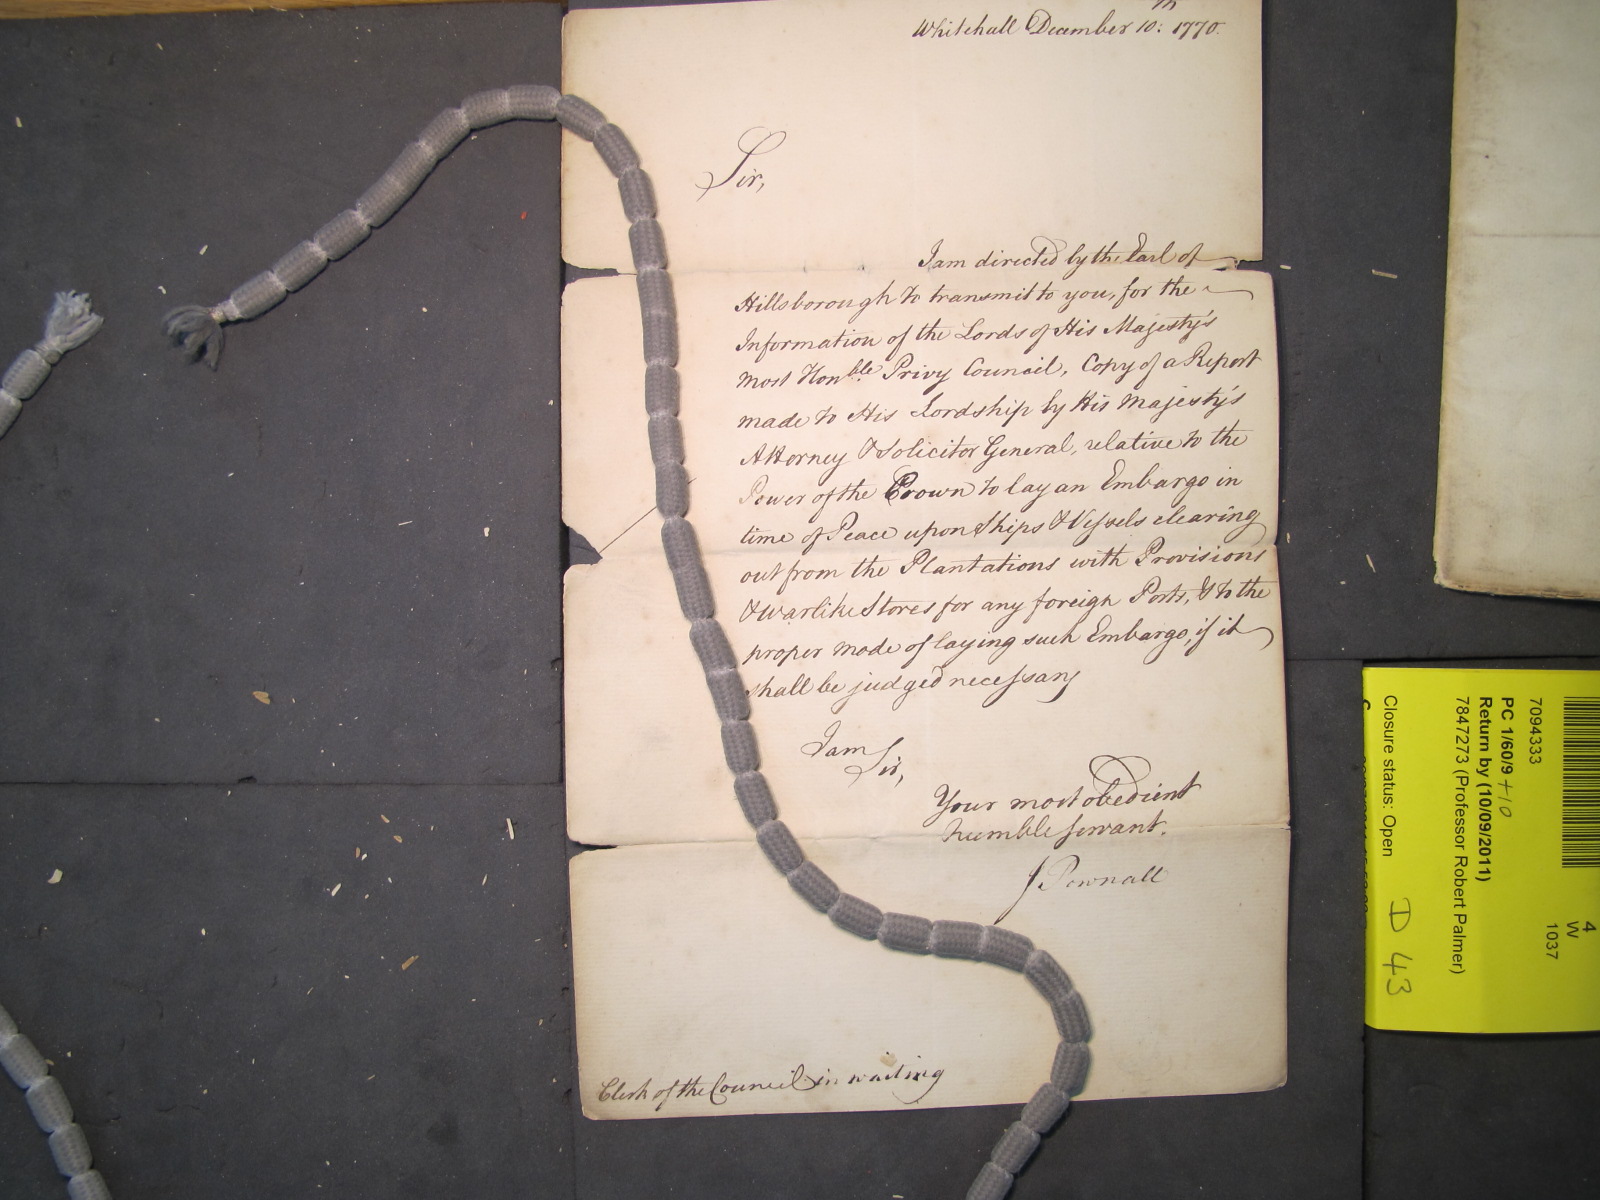 Whitehall December 10: 1770.
th
Sir,
I am directed by the Earl of
Hillsborough to transmit to you, for the
Information of the Lords of His Majesty's
most Honble. Privy Council, Copy of a Report
made to His Lordship by His Majesty's
Attorney & Solicitor General, relative to the
Power of the Crown to lay an Embargo in
time of Peace upon Ships & Vessels clearing
out from the Plantations with Provisions
& warlike Stores for any foreign Ports, & to the
proper mode of laying such Embargo, if it
shall be judged necessary
I am
Sir,
Your most obedient
humble servant.
J Pownall
Clerk of the Council in waiting
7094333
PC 1/60/9 +10
Return by (10/09/2011)
7847273 (Professor Robert Palmer)
Closure status: Open
4
W
1037
D 43